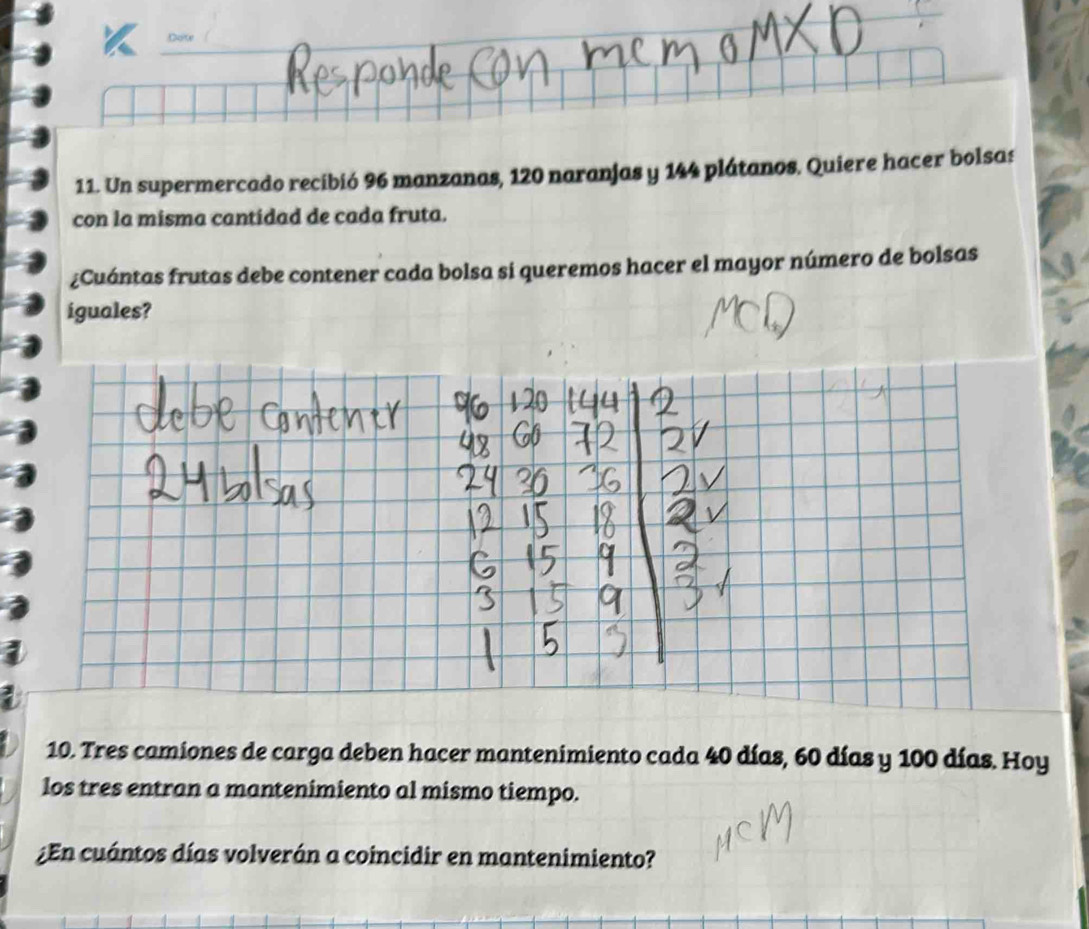 Date
Responde con mcm o MXD
11. Un supermercado recibió 96 manzanas, 120 naranjas y 144 plátanos. Quiere hacer bolsas
con la misma cantidad de cada fruta.
¿Cuántas frutas debe contener cada bolsa si queremos hacer el mayor número de bolsas
iguales?
MCD
debe contener
24 bolsas
96 120 144 | 2
48 60 72 | 2✓
24 30 36 | 2✓
12 15 18 | 2✓
6 15 9 | 2
3 15 9 | 3✓
1 5 3
10. Tres camiones de carga deben hacer mantenimiento cada 40 días, 60 días y 100 días. Hoy
los tres entran a mantenimiento al mismo tiempo.
MCM
¿En cuántos días volverán a coincidir en mantenimiento?